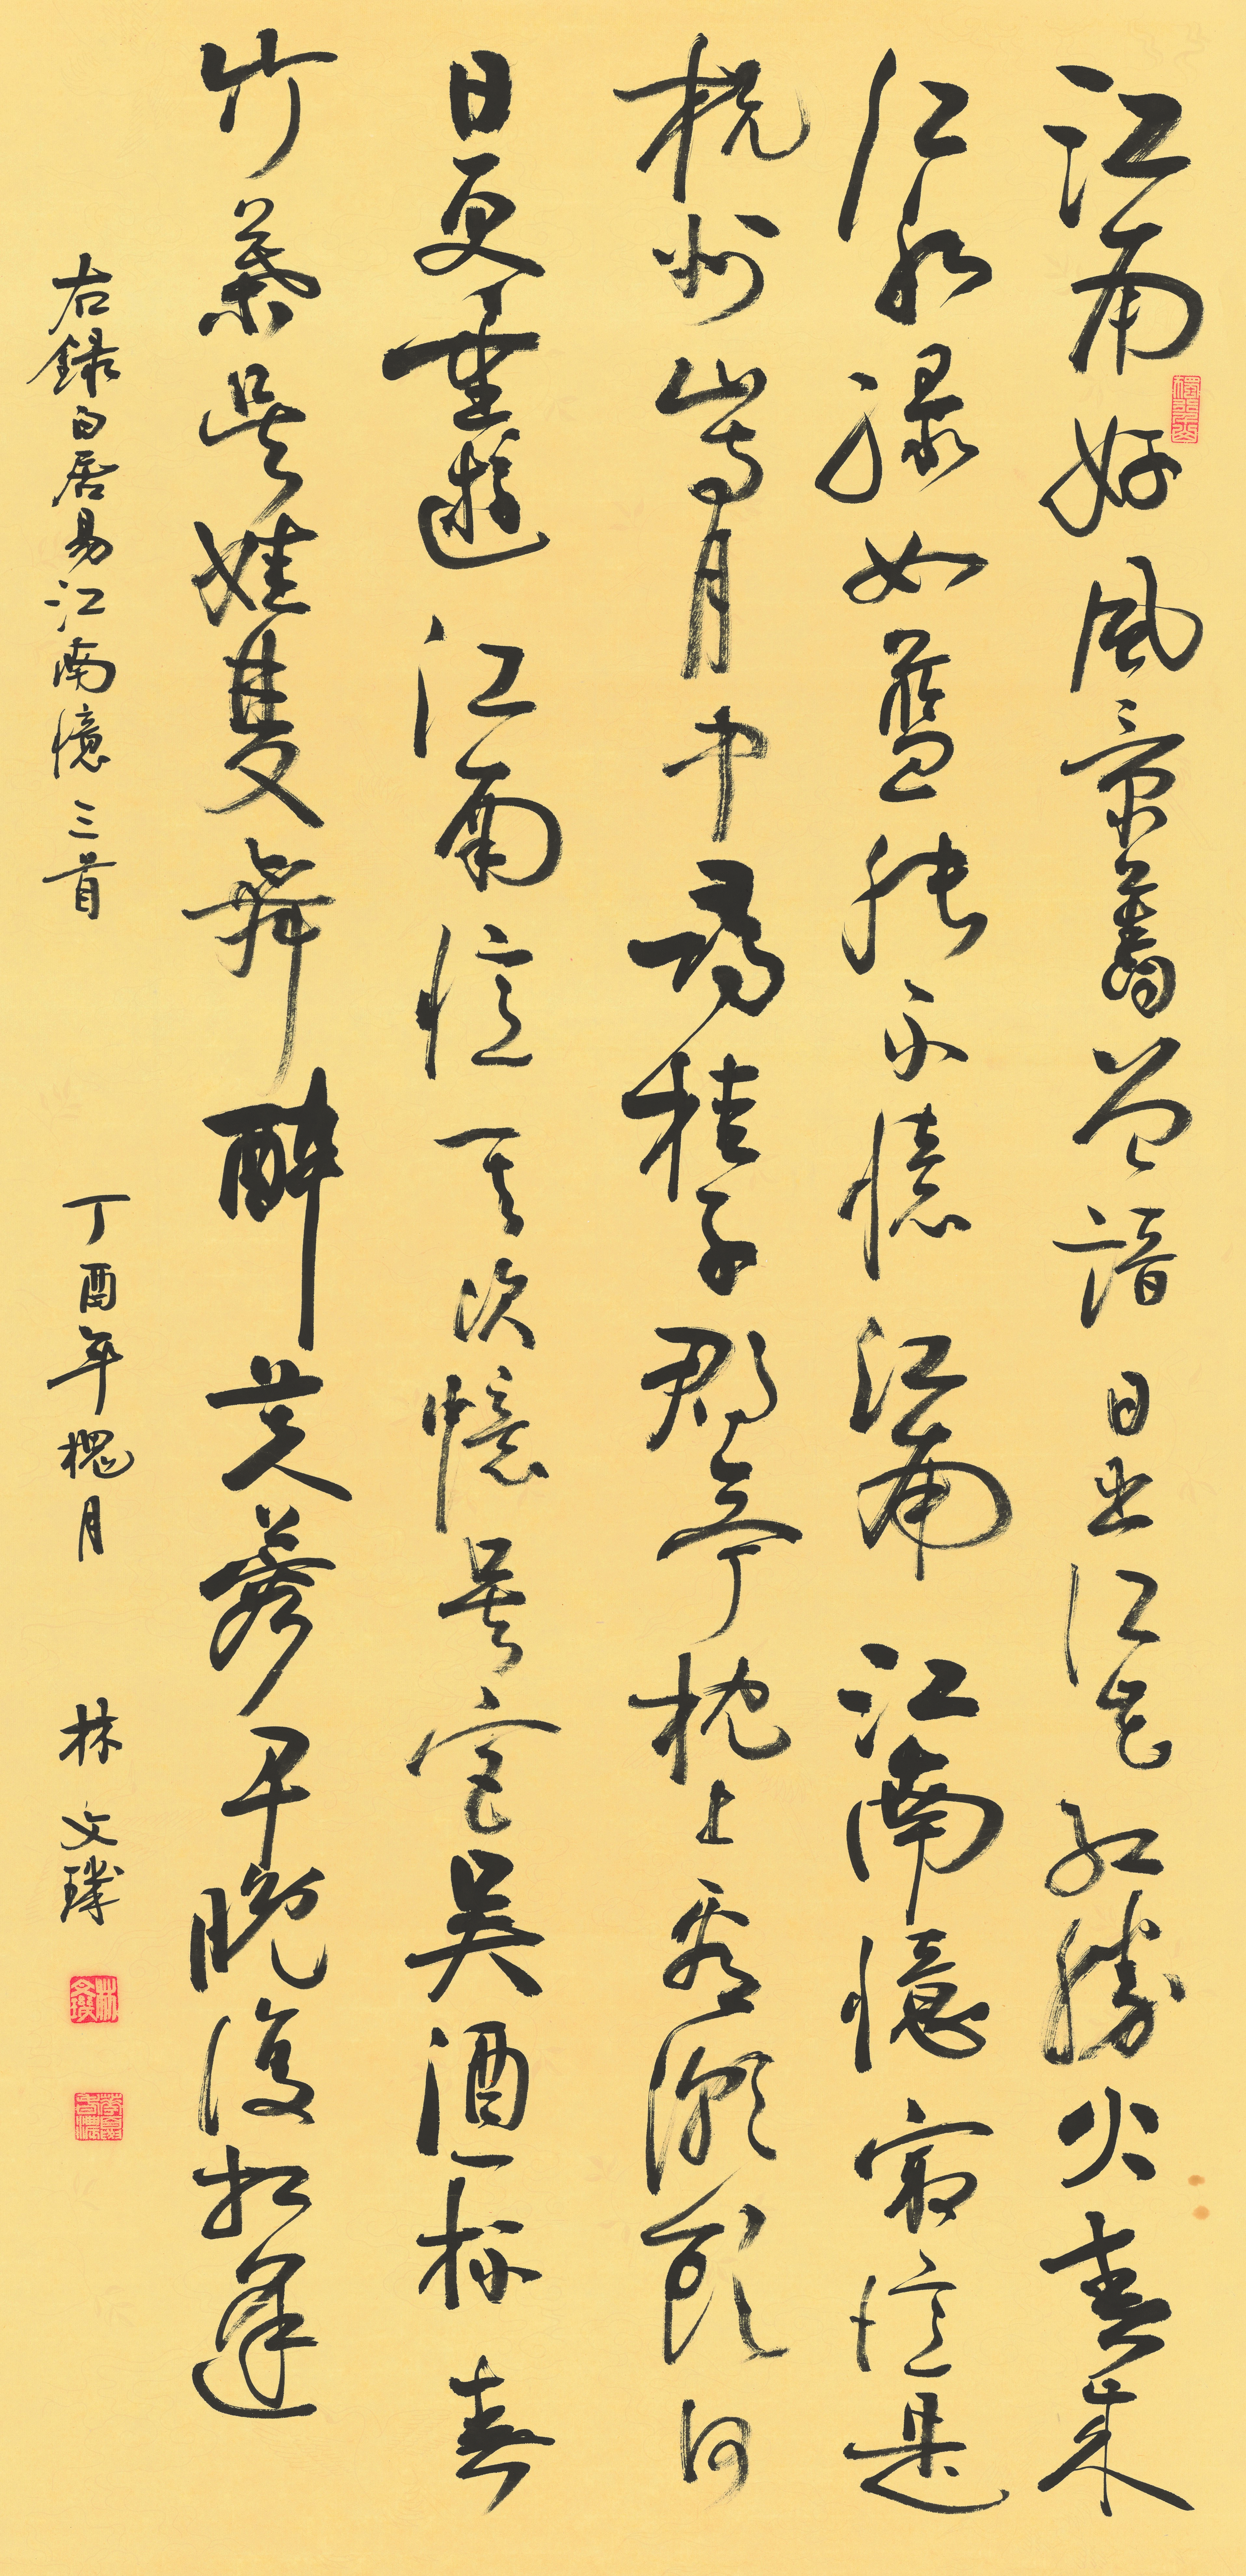 江南好風景舊曾諳日出江花紅勝火春來
江水綠如藍能不憶江南江南憶最憶是
杭州山寺月中尋桂子郡亭枕上看潮頭何
日更重遊江南憶其次憶吳宮吳酒一杯春
竹葉吳娃雙舞醉芙蓉早晚復相逢
右錄白居易江南憶三首 丁酉年槐月 林文